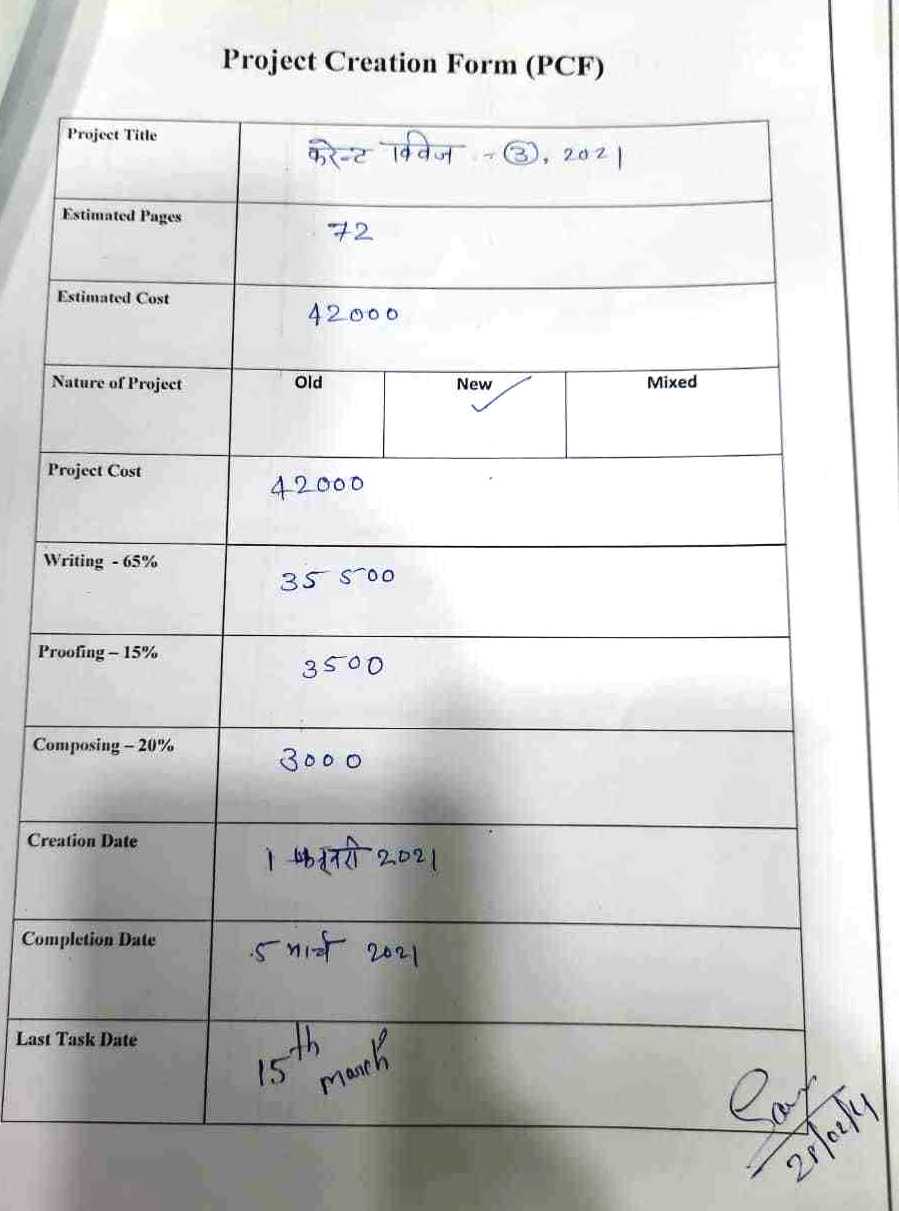 Project Creation Form (PCF)
Project Title करेन्ट क्विज - ③, 2021
Estimated Pages 72
Estimated Cost 42000
Nature of Project Old New ✓ Mixed
Project Cost 42000
Writing - 65% 35 500
Proofing – 15% 3500
Composing – 20% 3000
Creation Date 1 फरवरी 2021
Completion Date 5 मार्च 2021
Last Task Date 15th march